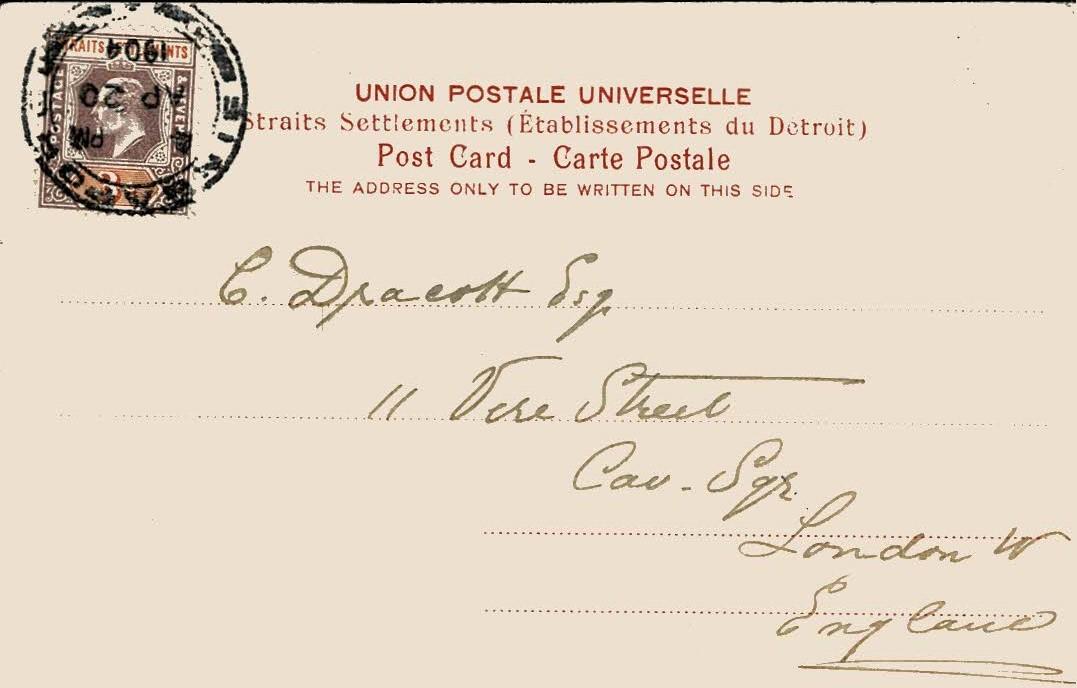 STRAITS SETTLEMENTS
POSTAGE & REVENUE
SINGAPORE
PM
AP 20
1904
UNION POSTALE UNIVERSELLE
Straits Settlements (Établissements du Detroit)
Post Card - Carte Postale
THE ADDRESS ONLY TO BE WRITTEN ON THIS SIDE
C. Dracott Esq
11 Vere Street
Cav. Sqr.
London W
England